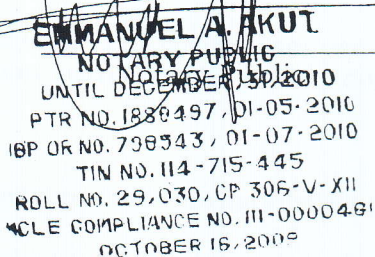 EMMANUEL A. AKUT
NOTARY PUBLIC
Notary Public
UNTIL DECEMBER 31, 2010
PTR NO. 1880497, 01-05-2010
IBP OR NO. 798543, 01-07-2010
TIN NO. 114-715-445
ROLL NO. 29,030, CP 306-V-XII
MCLE COMPLIANCE NO. III-0000461
OCTOBER 16, 2009